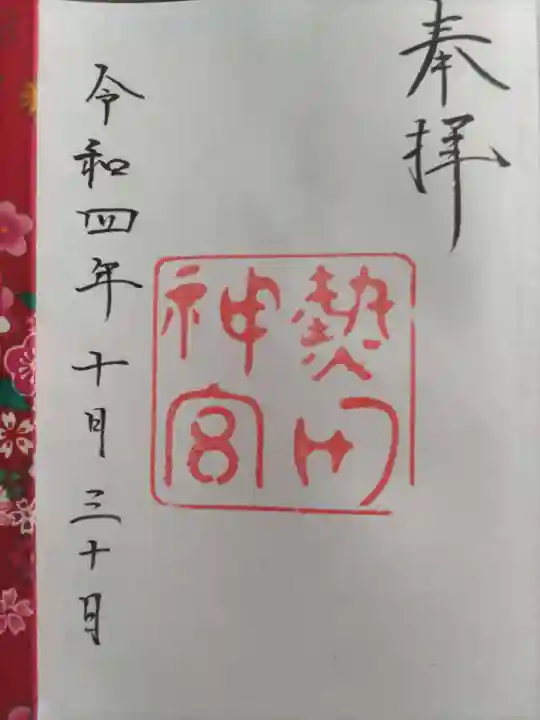 奉拝
熱田
神宮
令和四年十月三十日